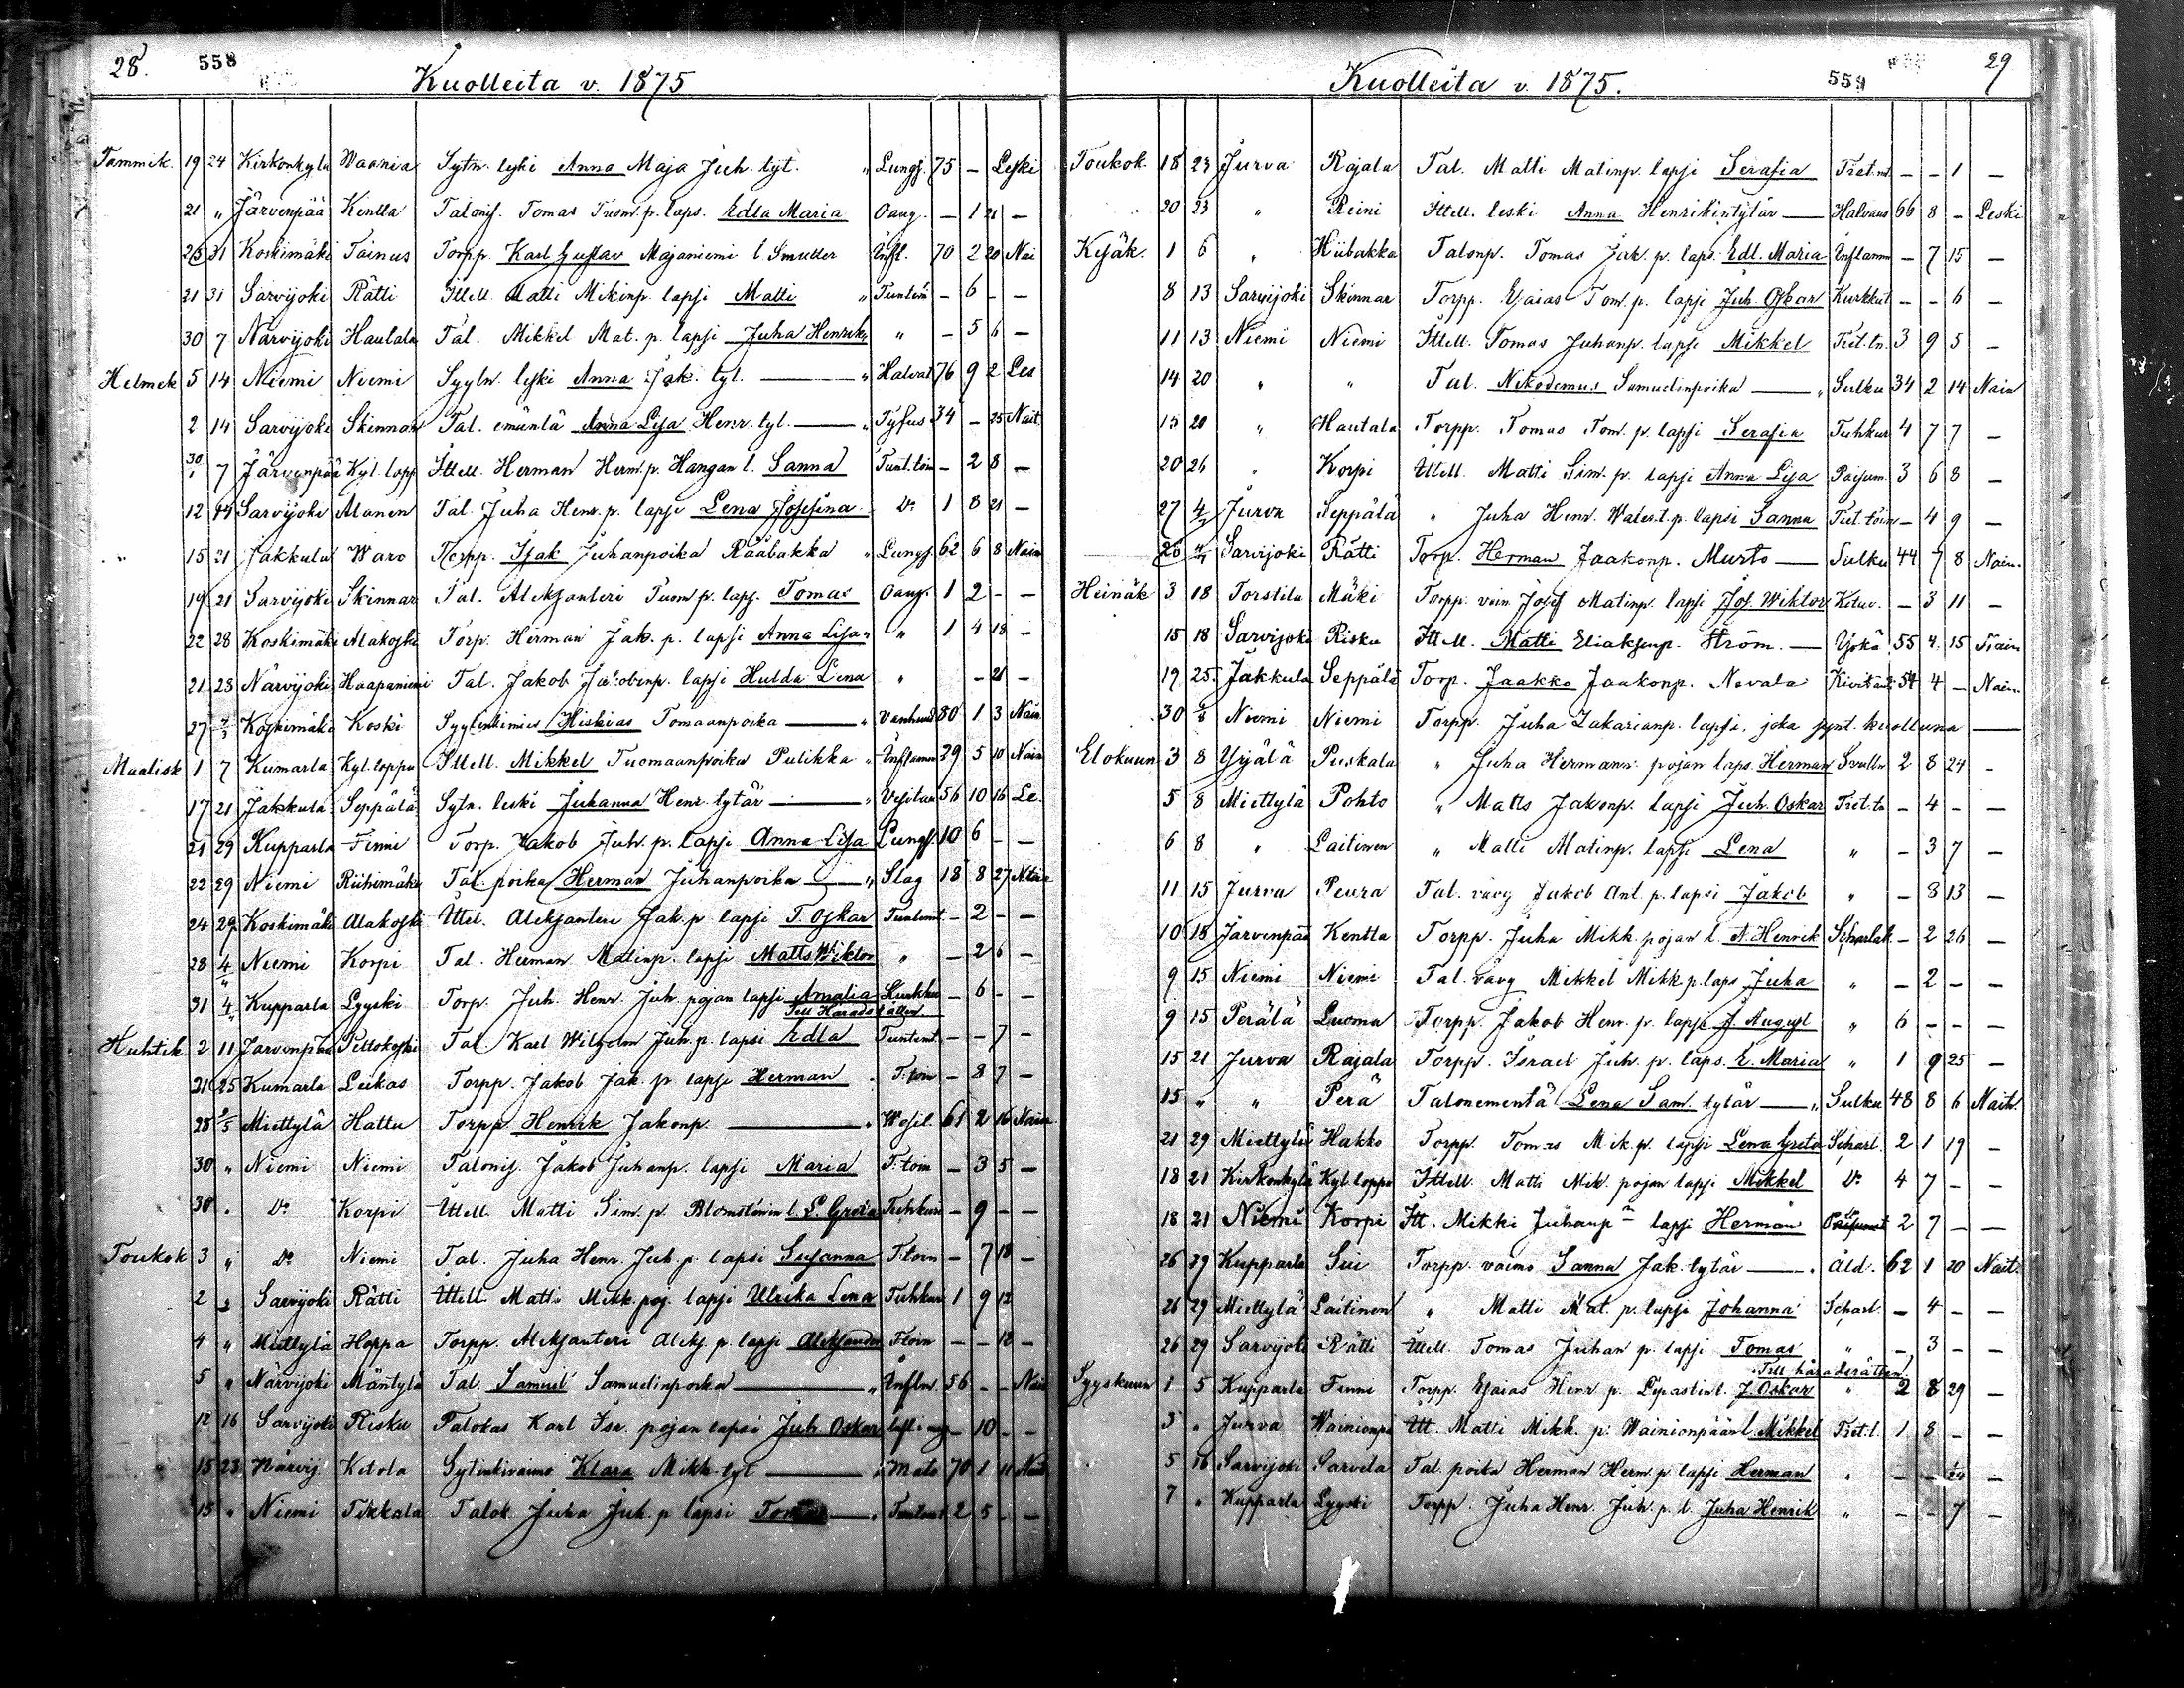 28. 558
Kuolleita v. 1875
Tammik. 19 24 Kirkonkylä Waania Sytn. leski Anna Maja Juh. tyt. " Lungs. 75 – Leski
21 " Järvenpää Kentta Talonis. Tomas Tuom. p. laps. Edla Maria Oaug. – 1 21 –
25 31 Koskimäki Tainus Torpp. Karl Gustav Majaniemi l. Smitter Infl. 70 2 20 Nai
21 31 Särvijoki Rätti Ittell. Matti Mikinp. lapsi Matti " Tuntem – 6 – –
30 7 Närvijoki Hautala Tal. Mikkel Mat. p. lapsi Juha Henrik " – 5 6 –
Helmek 5 14 Niemi Niemi Syytn. leski Anna Jak. tyt. — " Halvat 76 9 2 Les
2 14 Sarvijoki Skinnar Tal. emäntä Anna Lisa Henr. tyt. — " Tyfus 34 – 25 Nait
30/1 7 Järvenpää Kyl. lopp Ittell. Herman Herm. p. Hangan l. Sanna Tunt. tom – 2 8 –
12 14 Sarvijoki Alanen Tal. Juha Henr. p. lapsi Lena Josefina Do 1 8 21 –
" 15 21 Jakkula Waro Torpp. Isak Juhanpoika Rääbakka " Lungs. 62 6 8 Nain
19 21 Sarvijoki Skinnar Tal. Aleksanteri Tuom. p. laps. Tomas Oaug. 1 2 – –
22 28 Koskimäki Alakoski Torp. Herman Jak. p. lapsi Anna Lisa " " 1 4 18 –
21 23 Närvijoki Haapaniemi Tal. Jakob Jakobinp. lapsi Hulda Lena " – 21 –
27 Koskimäki Koski Syytinkimies Hiskias Tomaanpoika — " Vanhuud 80 1 3 Nain
Maalisk 1 7 Kumarla Kyl. loppu Ittell. Mikkel Tuomaanpoika Pulikka " Inflamm 39 5 10 Nain
17 21 Jakkula Seppälä Sytn. leski Juhanna Henr. tytär — " Vesitau 56 10 16 Le.
21 29 Kupparla Finni Torp. Jakob Juh. p. lapsi Anna Lisa Lungs. 10 6 – –
22 29 Niemi Riihimäki Tal. poika Herman Juhanpoika — " Slag 18 8 27
24 29 Koskimäki Alakoski Ittel. Aleksanteri Jak. p lapsi T. Oskar Tuntemt. – 2 – –
28 4 Niemi Korpi Tal. Herman Matinp. lapsi Matts Wiktor " – 2 6 –
31 4 Kupparla Lyyski Torp. Juh. Henr. Juh. pojan lapsi Amalia Kurkku – 6 – –
Till Häradsrätten.
Huhtik 2 11 Järvenpää Peltokoski Tal. Karl Wilhelm Juh. p. lapsi Edla Tuntemt. – – 7 –
21 25 Kumarla Leikas Torpp. Jakob Jak. p. lapsi Herman . T. tom – 8 7 –
28 Miettylä Hattu Torpp. Henrik Jakonp. — " Wesit. 61 2 16 Nain
30 " Niemi Niemi Talonis. Jakob Juhanp. lapsi Maria T. tom – 3 5 –
30 . Do Korpi Ittell. Matti Sim. p. l. L. Greta Tuhkur – 9 – –
Toukok 3 " Do Niemi Tal. Juha Henr. Juh. p. lapsi Susanna T. tom – 7 18 –
2 " Sarvijoki Rätti Ittell. Matti Mikk. poj. lapsi Ulrika Lena Tuhkur 1 9 12
4 " Miettylä Hoppa Torpp. Aleksanteri Aleks. p. lapsi Aleksander T. tom – – 12 –
5 " Närvijoki Mäntylä Tal. Samuel Samuelinpoika — " Inflm 56 – – Nain
12 16 Sarvijoki Risku Talokas Karl Isr. pojan lapsi Juh. Oskar – 10 – –
15 23 Närvij Ketola Sytinkivaimo Klara Mikk. tyt — " Mato 70 1 11 Nait
15 " Niemi Tikkala Talok. Juha Juh. p lapsi Tomas — " Tuntemt 2 5 – –
559 29.
Kuolleita v. 1875.
Toukok 18 23 Jurva Rajala Tal. Matti Matinp. lapsi Serafia Tiet. mt – – 1 –
20 23 " Reini Ittell. leski Anna Henrikintytär — Halvaus 66 8 – Leski
Kesäk. 1 6 " Hiibakka Talonp. Tomas Jak. p. laps. Edl. Maria Inflamm – 7 15 –
8 13 Sarvijoki Skinnar Torpp. Esaias Tom. p. lapsi Juh. Oskar Kurkkut – – 6 –
11 13 Niemi Niemi Ittell. Tomas Juhanp. lapsi Mikkel Tiet. tn. 3 9 5 –
14 20 " " Tal. Nikodemus Samuelinpoika — " Sulku 34 2 14 Nain
15 20 " Hautala Torpp. Tomas Tom. p. lapsi Serafia Tuhkur 4 7 7 –
20 26 " Korpi Ittell. Matti Sim. p. lapsi Anna Lisa Paisum. 3 6 8 –
27 4/7 Jurva Seppälä " Juha Henr. p. lapsi Sanna Tiet. tom – 4 9 –
26 4/7 Sarvijoki Rätti Torp. Herman Jaakonp. Murto — Sulku 44 7 8 Nain.
Heinäk 3 18 Torstila Mäki Torpp. Josef Matinp. lapsi Jos. Wiktor Kituv. – 3 11 –
15 18 Sarvijoki Risku Ittell. Matti Eliaksenp. Ström. — Yskä 55 4 15 Nain
19 25 Jakkula Seppälä Torp. Jaakko Jaakonp. Nevala Kivitaut. 54 4 – Nain.
30 Niemi Niemi Torpp. Juha Zakarianp. lapsi, joka synt. kuolluna —
Elokuun 3 8 Yrjälä Puskala " Juha Hermann. pojan laps. Herman 2 8 24 –
5 8 Miettylä Pohto " Matts Jakonp. lapsi Juh. Oskar Tiet. tn – 4 – –
6 8 " Laitinen " Matti Matinp. lapsi Lena " – 3 7 –
11 15 Jurva Peura Tal. vävy Jakob Ant. p. lapsi Jakob " – 8 13 –
10 18 Järvenpää Kentta Torpp. Juha Mikk. pojan l. A. Henrik Scharlak – 2 26 –
9 15 Niemi Niemi Tal. vävy Mikkel Mikk. p. laps. Juha " – 2 – –
9 15 Perälä Luoma Torpp. Jakob Henr. p. lapsi J. August " 6 – – –
15 21 Jurva Rajala Torpp. Israel Juh. p. laps. E. Maria " 1 9 25 –
15 " " Perä Talonemäntä Lena Sam. tytär — " Sulku 48 8 6 Nait.
21 29 Miettylä Hakko Torpp. Tomas Mik. p. lapsi Lena Greta Scharl. 2 1 19 –
18 21 Kirkonkylä Kyl. loppu Ittell. Matti Mik. pojan lapsi Mikkel Do 4 7 – –
18 21 Niemi Korpi Itt. Mikki Juhanp lapsi Herman 2 7 – –
26 29 Kupparla Sui Torpp. vaimo Sanna Jak. tytär — . Åld. 62 1 20 Nait.
26 29 Miettylä Laitinen " Matti Mat. p. lapsi Johanna Scharl. – 4 – –
26 29 Sarvijoki Rätti Ittell. Tomas Juhan p. lapsi Tomas " – 3 – –
Till häradsrätten
Syyskuun 1 5 Kupparla Finni Torpp. Esaias Henr. p. l. J. Oskar " 2 8 29 –
3 " Jurva Wainionpä Itt. Matti Mikk. p. Wainionpään l. Mikkel Tiet. t. 1 8 – –
5 16 Sarvijoki Sarvela Tal. poika Herman Herm. p. lapsi Herman " – – 24 –
7 " Kupparla Lyyski Torpp. Juha Henr. Juh. p. l. Juha Henrik " – – 7 –